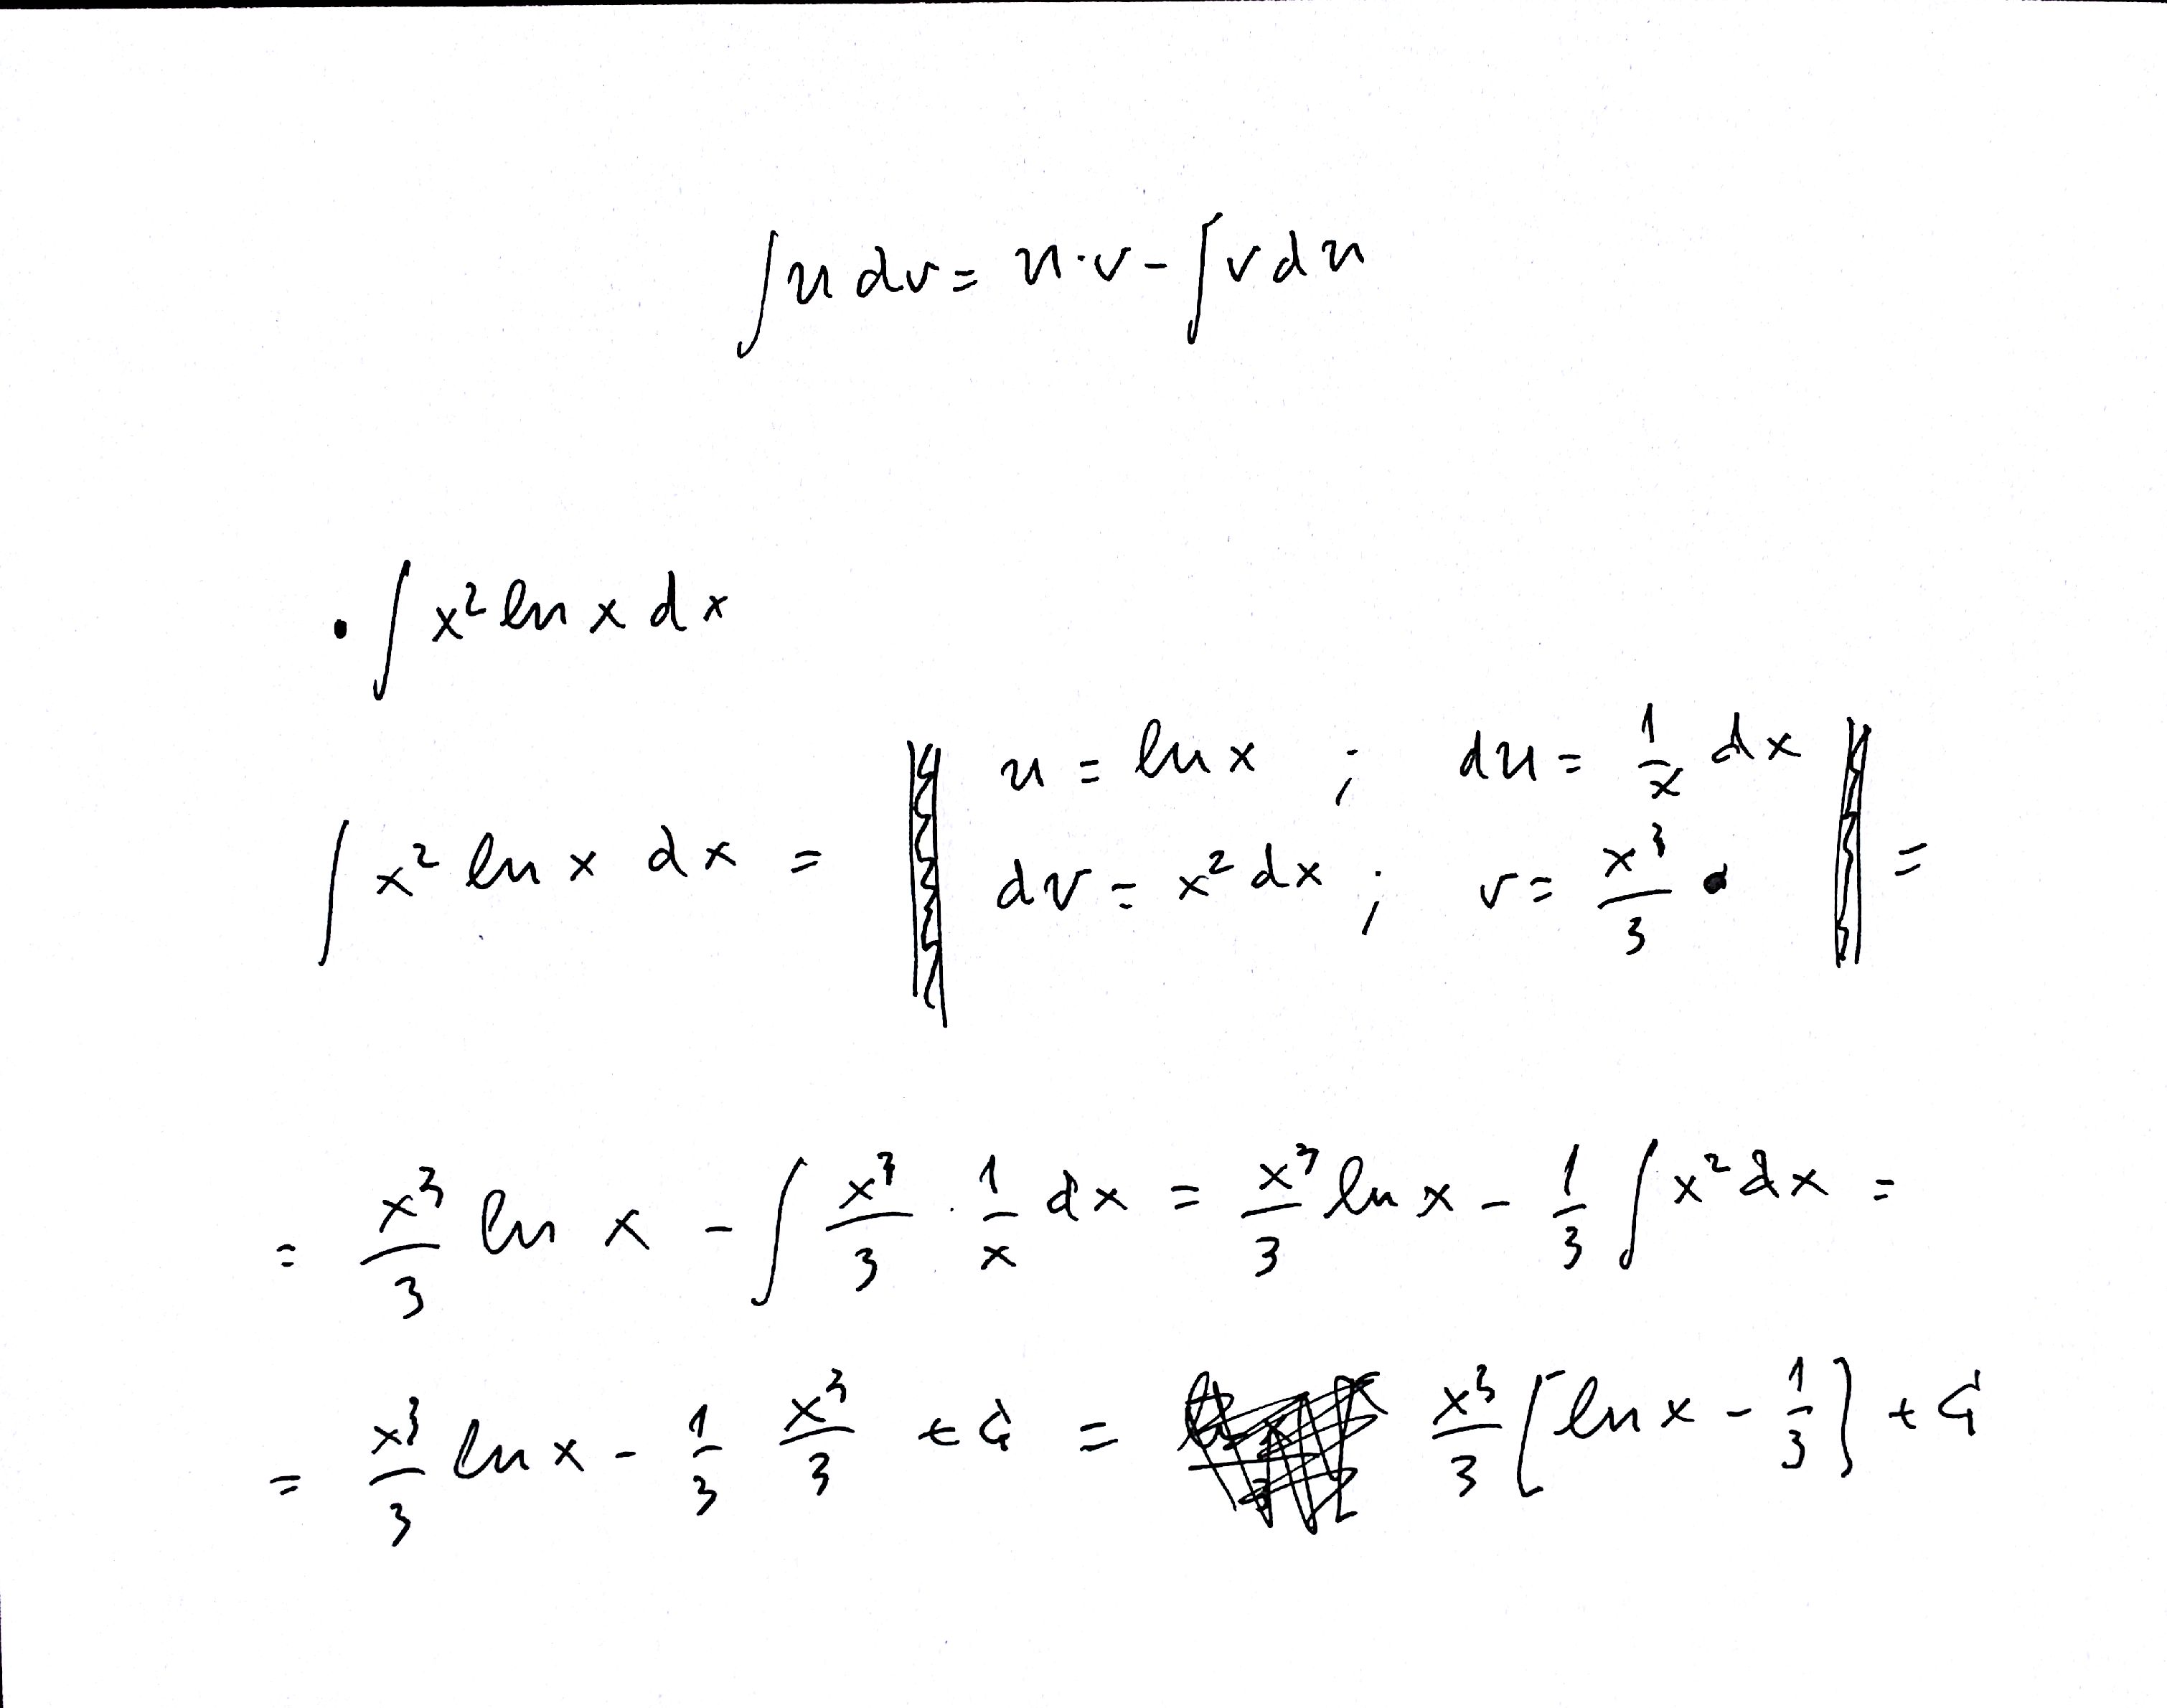 ∫u dv = u·v - ∫v du
• ∫ x² ln x dx
∫ x² ln x dx = ‖ u = ln x ; du = 1/x dx
dv = x² dx ; v = x³/3 ‖ =
= x³/3 ln x - ∫ x³/3 · 1/x dx = x³/3 ln x - 1/3 ∫ x² dx =
= x³/3 ln x - 1/3 x³/3 + C = x³/3 [ln x - 1/3] + C